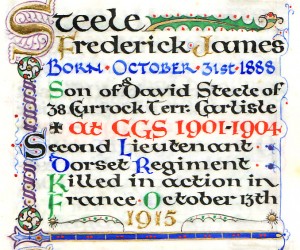 Steele
Frederick James
Born · October · 31st · 1888
Son of David Steele of
38 Currock Terr. Carlisle
at CGS 1901-1904
Second Lieutenant ·
Dorset Regiment
Killed in action in
France · October 13th
1915